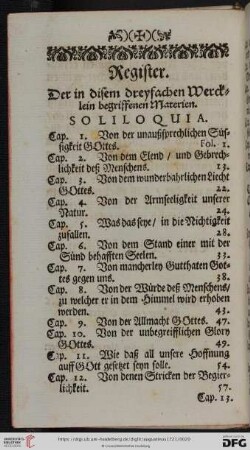 Register.
Der in disem dreyfachen Werck-
lein begriffenen Materien.
SOLILOQUIA.
Cap. 1. Von der unaußsprechlichen Süs-
sigkeit GOttes. Fol. 1.
Cap. 2. Von dem Elend / und Gebrech-
lichkeit deß Menschens. 13.
Cap. 3. Von dem wunderbahrlichen Liecht
GOttes. 22.
Cap. 4. Von der Armseeligkeit unserer
Natur. 24.
Cap. 5. Was das seye / in die Nichtigkeit
zufallen. 28.
Cap. 6. Von dem Stand einer mit der
Sünd behafften Seelen. 33.
Cap. 7. Von mancherley Gutthaten Got-
tes gegen uns. 38.
Cap. 8. Von der Würde deß Menschens /
zu welcher er in dem Himmel wird erhoben
werden. 43.
Cap. 9. Von der Allmacht GOttes. 47.
Cap. 10. Von der unbegreifflichen Glory
GOttes. 49.
Cap. 11. Wie daß all unsere Hoffnung
auff GOtt gesetzet seyn solle. 54.
Cap. 12. Von denen Stricken der Begier-
lichkeit. 57.
Cap. 13.
DFG